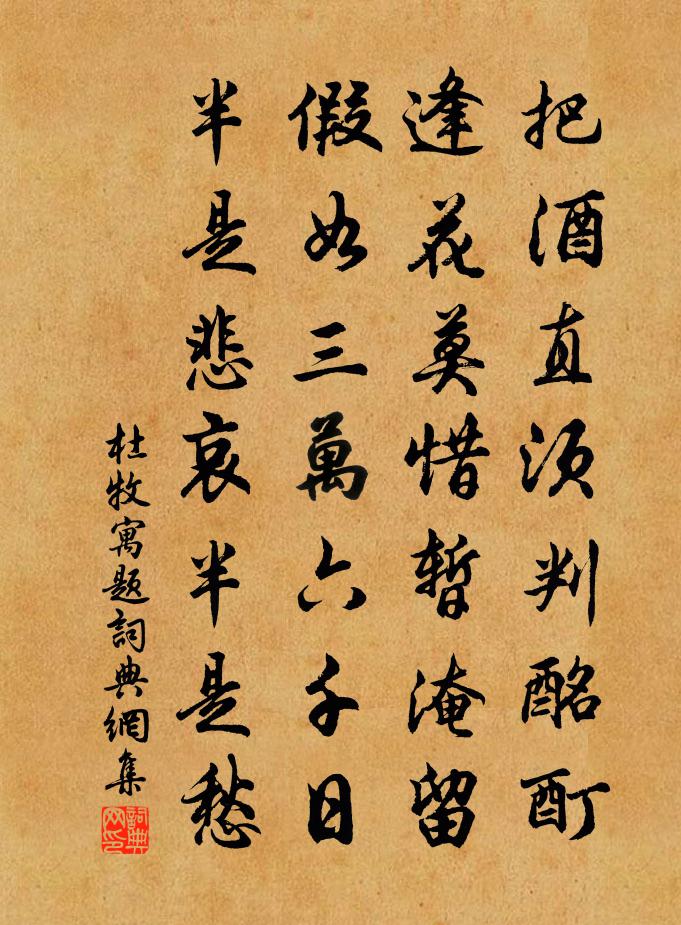 把酒直須判酩酊
逢花莫惜暫淹留
假如三萬六千日
半是悲哀半是愁
杜牧寓題詞典網集
詞典网印